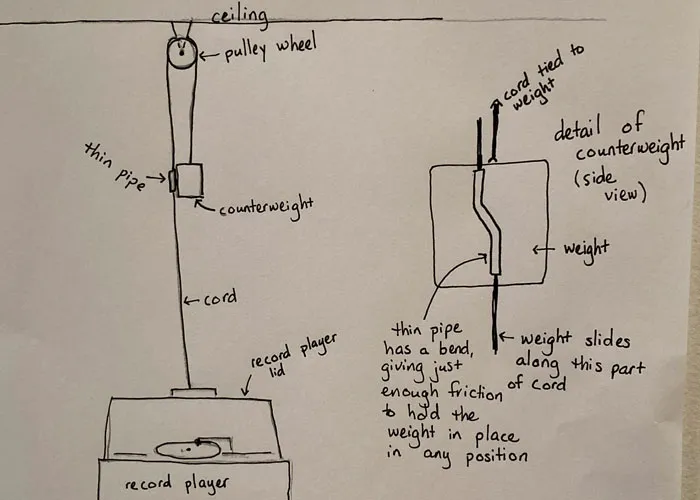 ceiling
pulley wheel
thin pipe
counterweight
cord
record player
lid
record player
cord tied to
weight
detail of
counterweight
(side
view)
weight
thin pipe
has a bend,
giving just
enough friction
to hold the
weight in place
in any position
weight slides
along this part
of cord